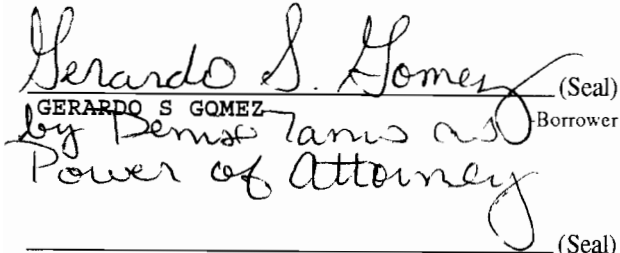 Gerardo S. Gomez (Seal)
GERARDO S GOMEZ -Borrower
by as
Power of Attorney
(Seal)